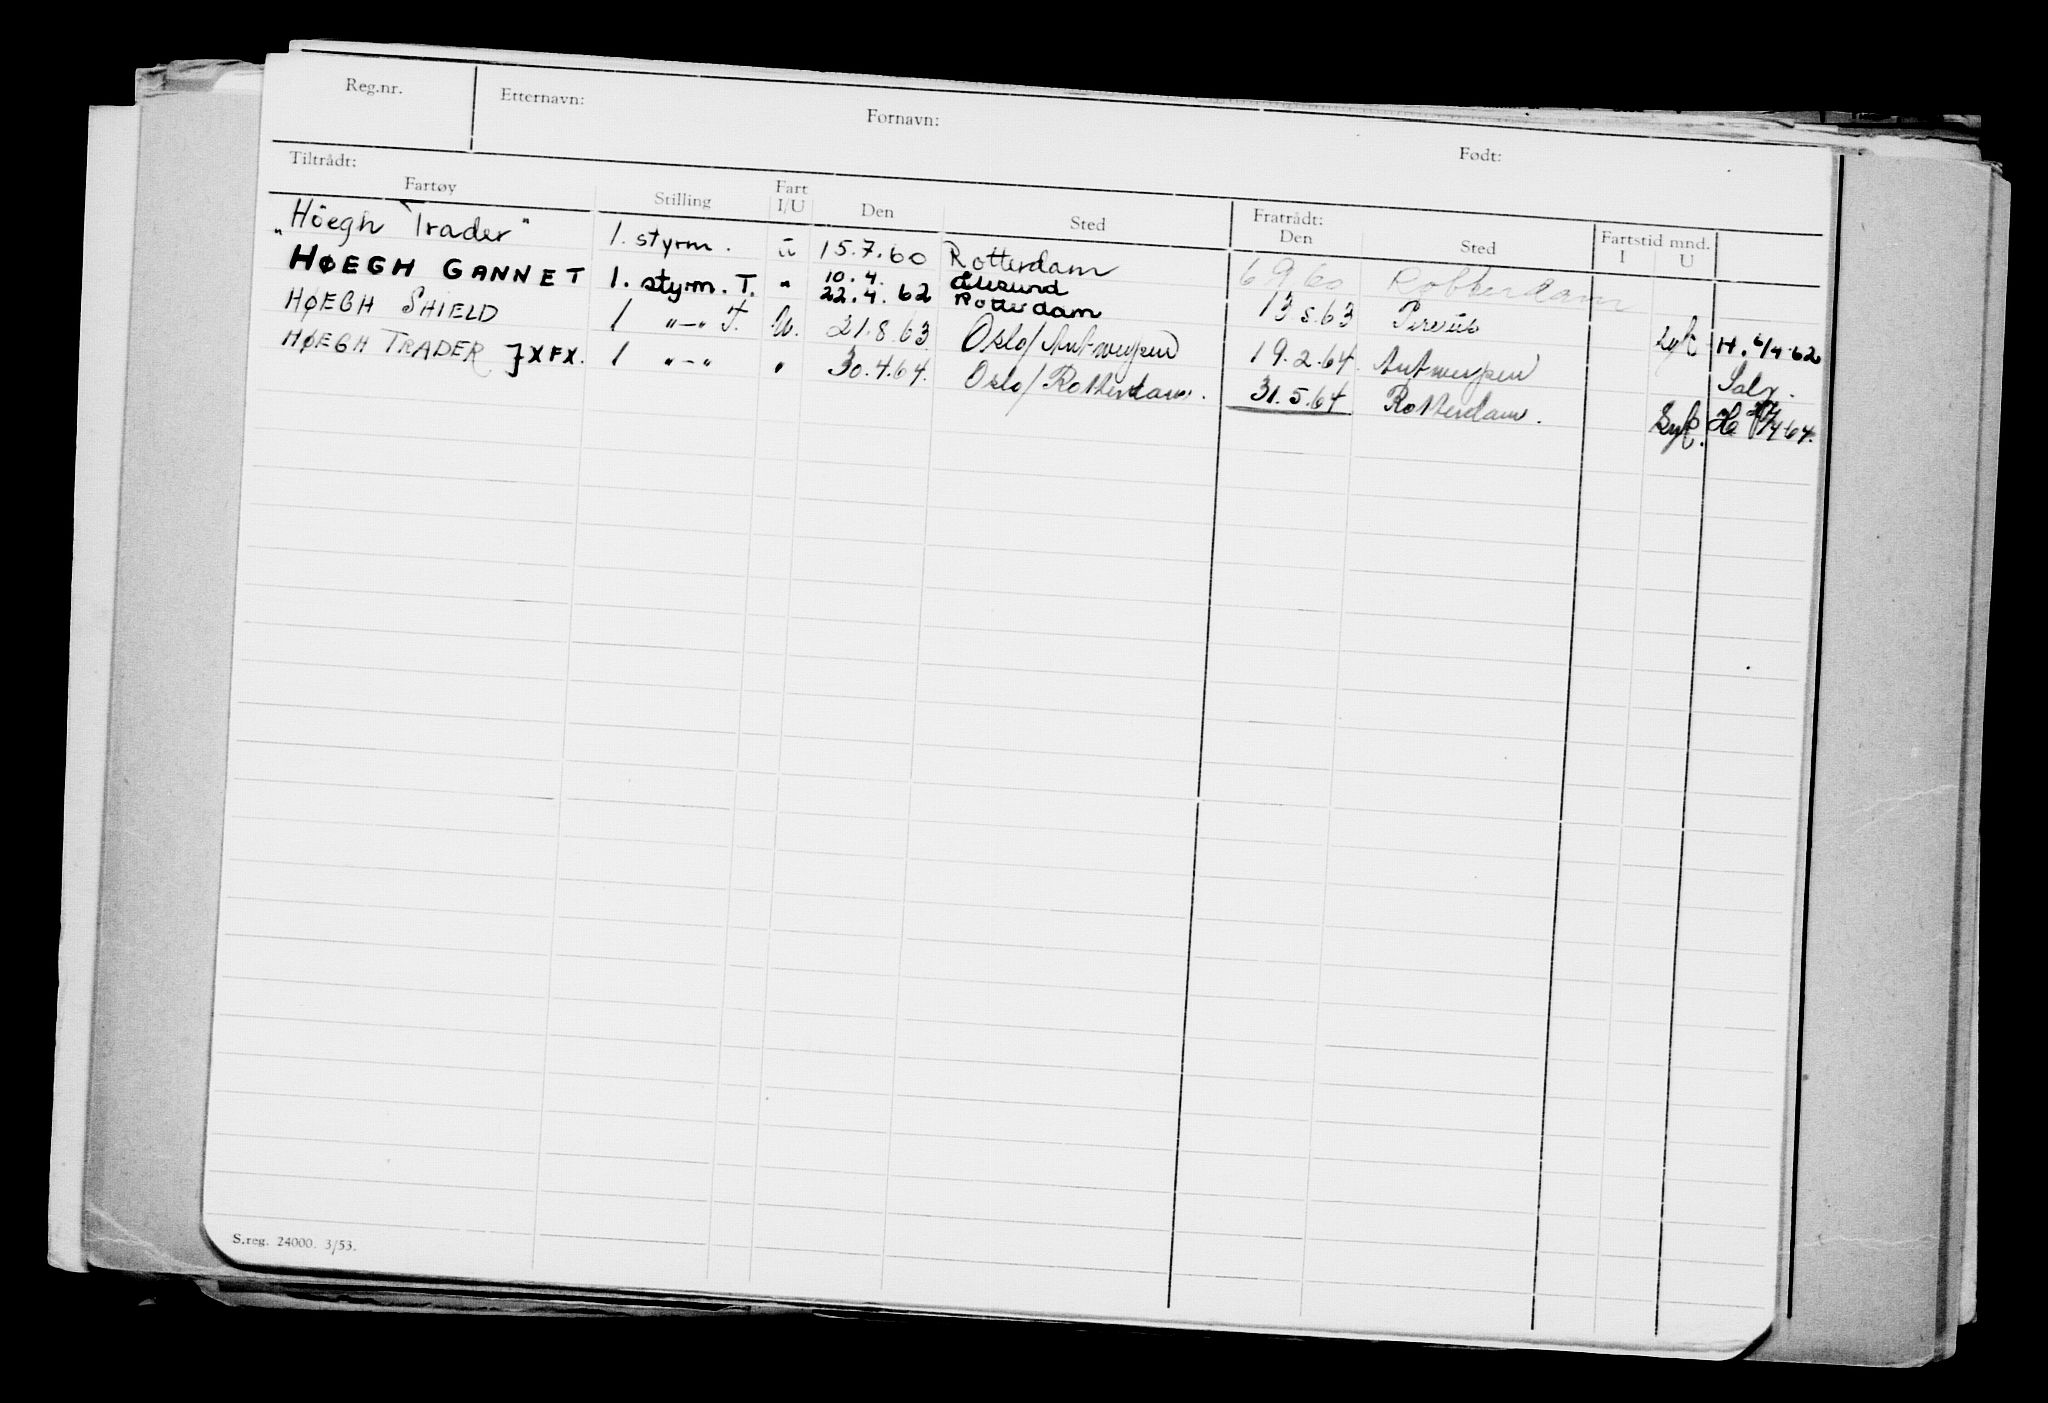 Reg.nr. Etternavn: Fornavn: Født:
Tiltrådt: Fratrådt: Fartstid mnd.
Fartøy Stilling Fart I/U Den Sted Den Sted I U
"Höegh Trader" 1. styrm. u 15.7.60 Rotterdam 6 9 60 Rotterdam
HØEGH GANNET 1. styrm. T. " 10.4. Ålesund
22.4.62 Rotterdam 13.5.63 H. 6/4-62
HØEGH SHIELD 1 "—" T. U. 21.8.63 Oslo/Antwerpen 19.2.64. Antwerpen
HØEGH TRADER JXFX. 1 "—" " 30.4.64. Oslo/Rotterdam. 31.5.64 Rotterdam.
S.reg. 24000. 3/53.